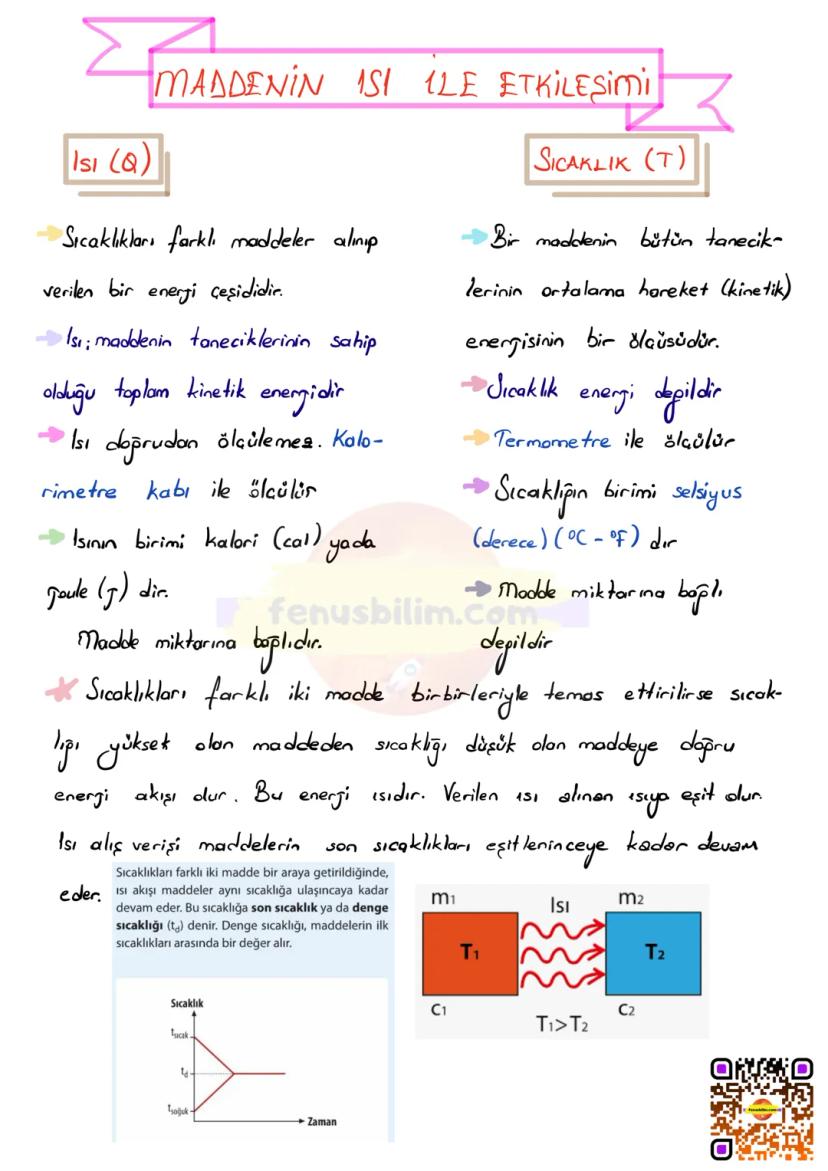 MADDENİN ISI İLE ETKİLEŞİMİ
ISI (Q)
Sıcaklıkları farklı maddeler alınıp
verilen bir energi çeşididir.
Isı; maddenin taneciklerinin sahip
olduğu toplam kinetik energidir
Isı doğrudan ölçülemez. Kalo-
rimetre kabı ile ölçülür
Isının birimi kalori (cal) yada
Joule (J) dir.
Madde miktarına bağlıdır.
SICAKLIK (T)
Bir maddenin bütün tanecik-
lerinin ortalama hareket (kinetik)
energisinin bir ölçüsüdür.
Sıcaklık energi değildir
Termometre ile ölçülür
Sıcaklığın birimi selsiyus
(derece) (°C - °F) dır
Madde miktarına bağlı
değildir
fenusbilim.com
Sıcaklıkları farklı iki madde birbirleriyle temas ettirilirse sıcak-
lığı yüksek olan maddeden sıcaklığı düşük olan maddeye doğru
energi akışı olur. Bu energi ısıdır. Verilen ısı alınan ısıya eşit olur.
Isı alış verişi maddelerin son sıcaklıkları eşitleninceye kadar devam
eder.
Sıcaklıkları farklı iki madde bir araya getirildiğinde,
ısı akışı maddeler aynı sıcaklığa ulaşıncaya kadar
devam eder. Bu sıcaklığa son sıcaklık ya da denge
sıcaklığı (td) denir. Denge sıcaklığı, maddelerin ilk
sıcaklıkları arasında bir değer alır.
Sıcaklık
tsıcak
td
tsoğuk
Zaman
m1 Isı m2
T1 T2
C1 C2
T1>T2
Fenusbilim.com